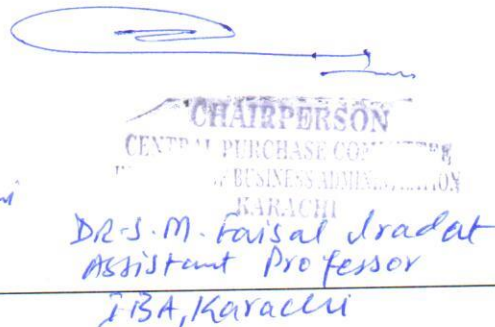 CHAIRPERSON
CENTRAL PURCHASE COMMITTEE
OF BUSINESS ADMINISTRATION
KARACHI
DR.S.M.Faisal Iradat
Assistant Professor
IBA, Karachi